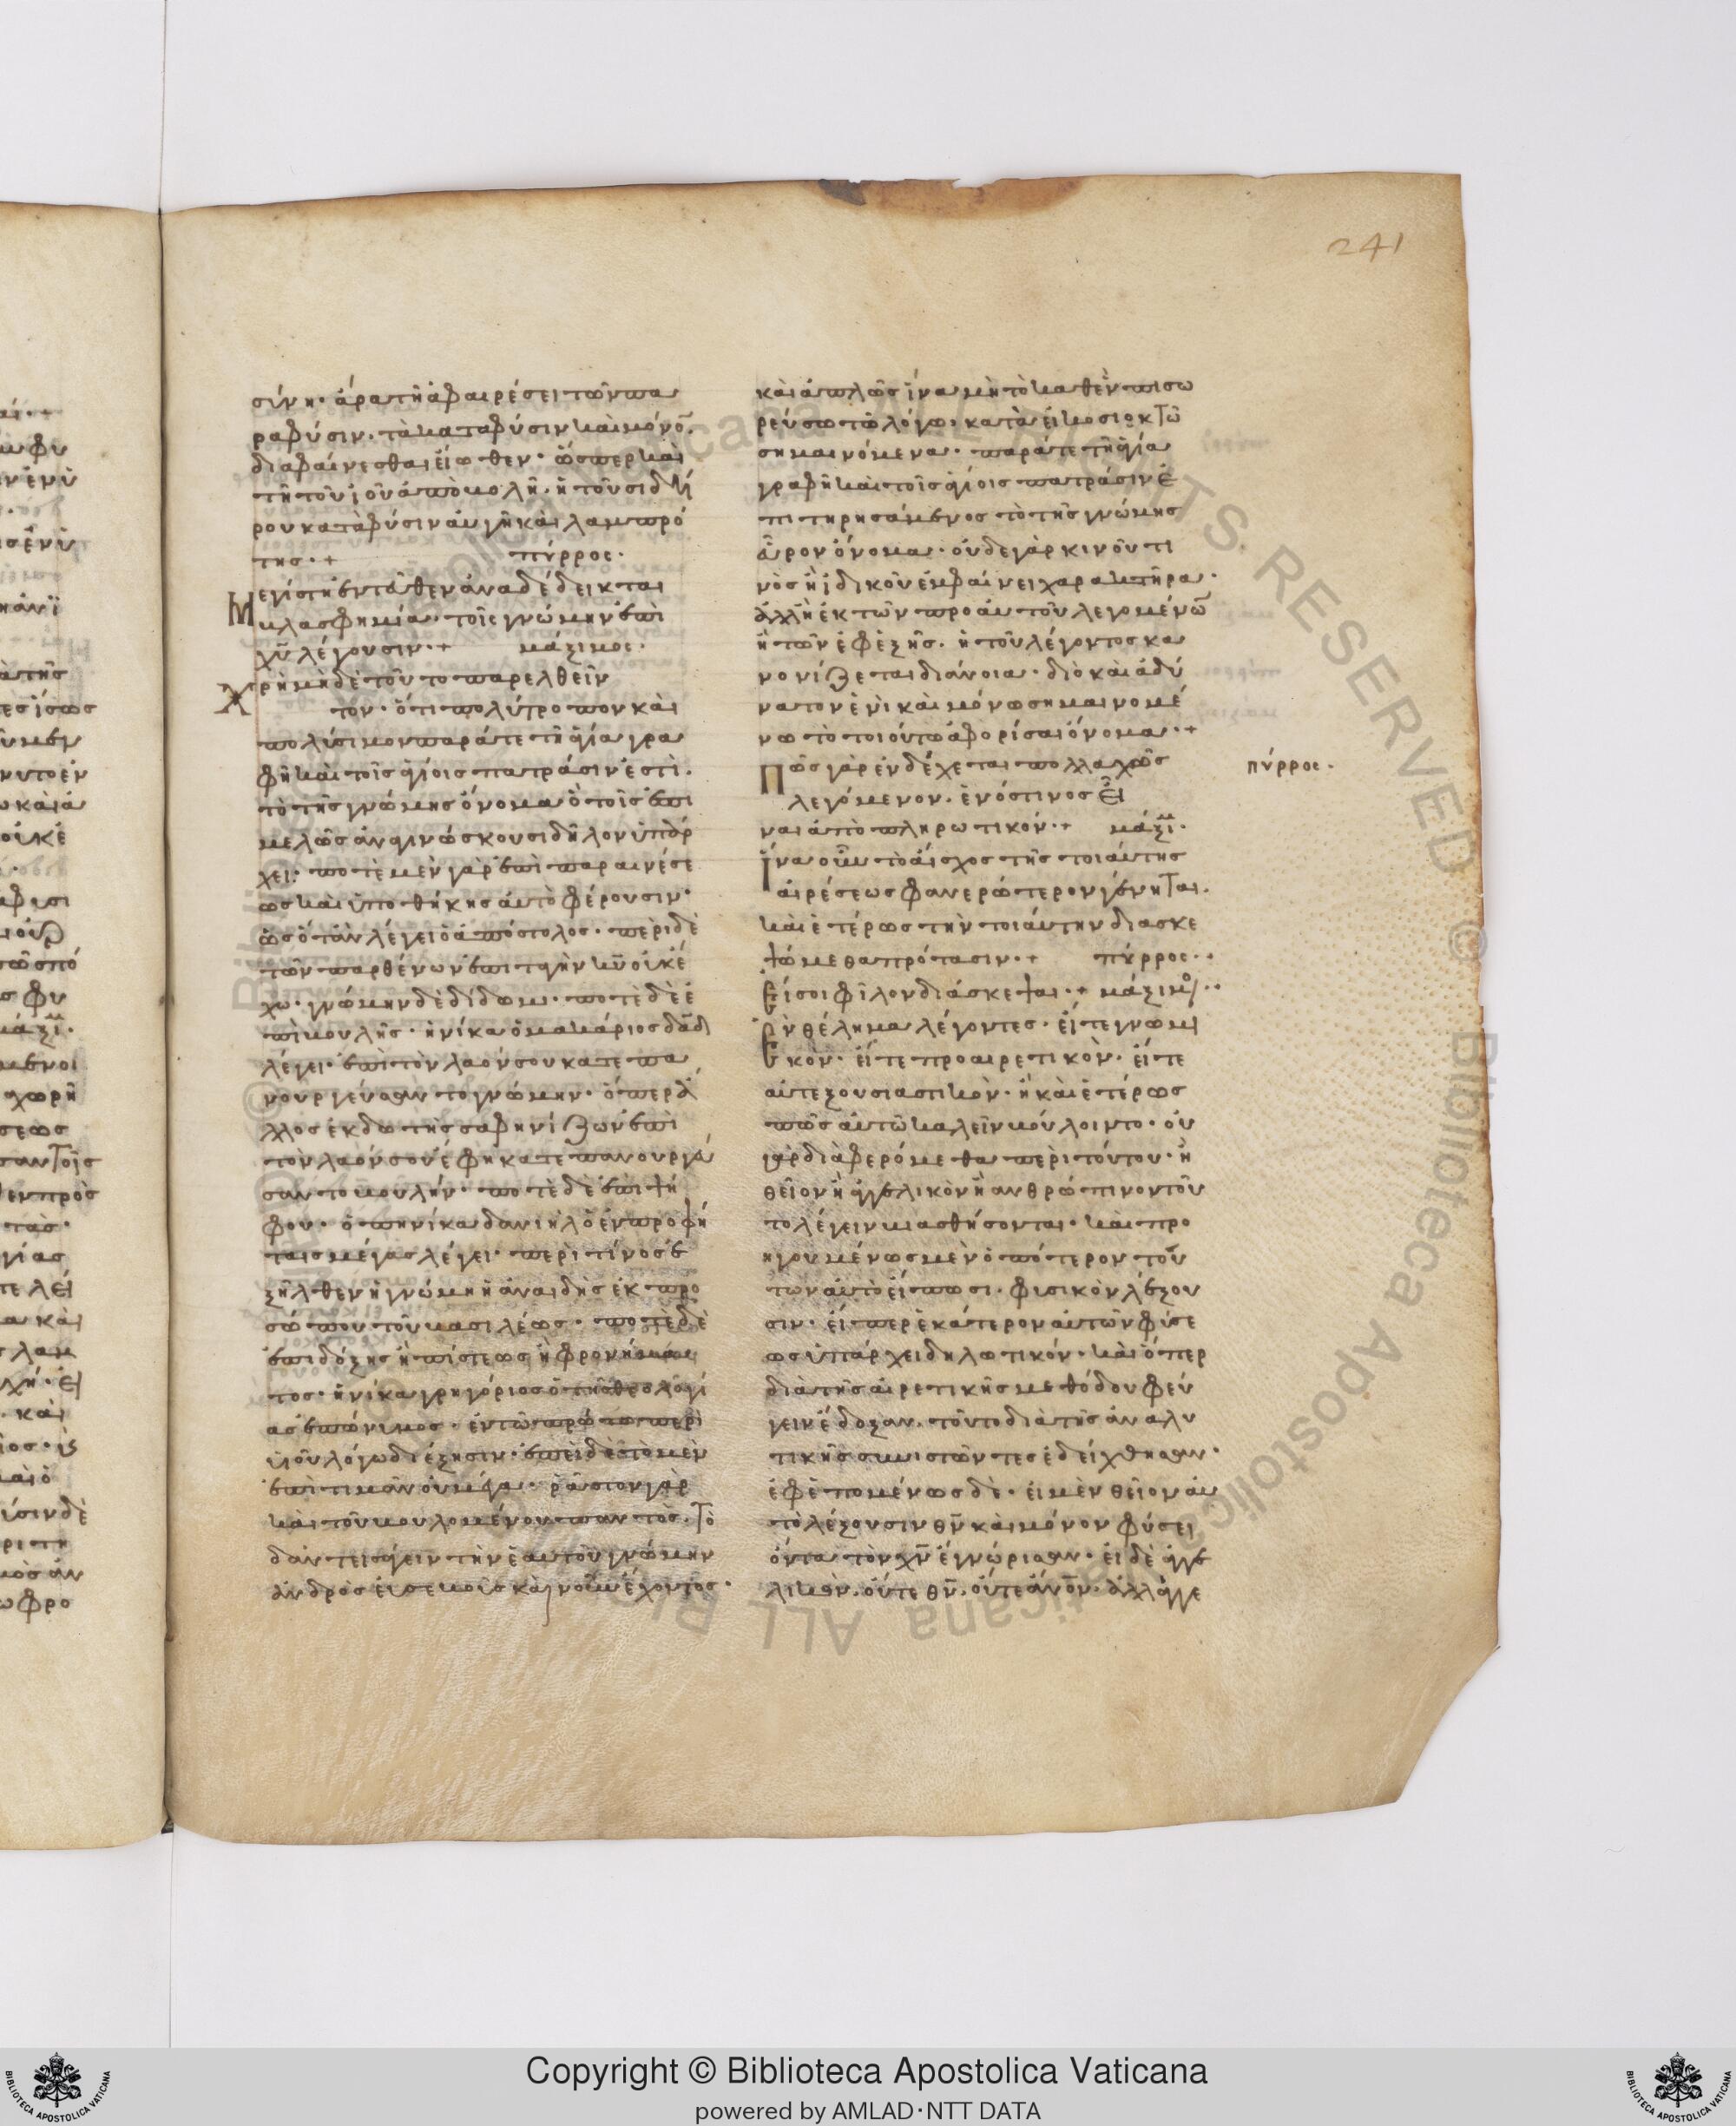 241
σύνη· ἅρα τῆ ἀφαιρέσει τῶν πα
ρα φύσιν· τὰ κατα φύσιν καὶ μόνο̅
διαφαίνεσθαι εἴωθεν· ὥσπερ καὶ
τῆ τοῦ ἰοῦ ἀποκολῆ· ἡ τοῦ σιδή
ρου κατὰ φύσιν αὐγὴ καὶ λαμπρό
της·+ πύρρος·
Μεγίστη ἐντεῦθεν ἀναδέδεικται
βλασφημία· τοῖς γνώμην ἐπὶ
χυ̅ λέγουσιν·+ μάξιμος·
Χρὴ μηδὲ τοῦτο παρελθεῖν
τον· ὅτι πολύτροπον καὶ
πολύσιμον παρά τε τῆ ἁγία γρα
φῆ καὶ τοῖς ἁγίοις πατράσιν ἐστὶ·
τὸ τῆς γνώμης ὄνομα ὃ τοῖς ἐπι
μελῶς ἀναγινώσκουσι δῆλον ὑπάρ
χει· ποτὲ μὲν γὰρ ἐπὶ παραινέσε
ως καὶ ὑποθήκης αὐτὸ φέρουσιν·
ὡς ὅταν λέγει ὁ ἀπόστολος· περὶ δὲ
τῶν παρθένων ἐπιταγὴν κυ̅ οὐκ έ
χω· γνώμην δὲ δίδωμι· ποτὲ δὲ ἐ
πὶ βουλῆς· ἡνίκα ὁ μακάριος δα̅δ
λέγει· ἐπὶ τὸν λαόν σου κατεπα
νουργεύσαντο γνώμην· ὅπερ ἄ
λλος ἐκδώτης σαφηνίζων ἐπὶ
τὸν λαόν σου ἔφη κατεπανουργά
σαντο βουλήν· ποτὲ δὲ ἐπὶ ψή
φου· ὁπηνίκα δανιὴλ ὁ ἐν προφή
ταις μέγας λέγει· περὶ τίνος ἐ
ξῆλθεν ἡ γνώμη ἡ ἀναιδὴς ἐκ προ
σώπου τοῦ βασιλέως· ποτὲ δὲ
ἐπι δόξης ἢ πίστεως ἢ φρονήμα
τος· ἡνίκα γρηγόριος ὁ τῆς θεολογί
ας ἐπώνυμος· ἐν τῶ πρώτω περὶ
υἱοῦ λόγω διέξησιν· ἐπεὶ δὲ τὸ μὲν
ἐπιτιμᾶν οὐ μέγα· ῥᾶστον γὰρ
καὶ τοῦ βουλομένου παντὸς· τὸ
δ᾽ ἀντεισάγειν τὴν ἑαυτοῦ γνώμην
ἀνδρὸς εὐσεβοῦς καὶ νοῦν ἔχοντος·
καὶ ἁπλῶς ἵνα μὴ τὸ καθὲν πισω
ρεύσω τῶ λόγω· κατὰ εἰκοσιοκτὼ
σημαινόμενα· παρά τε τῆ ἁγία
γραφῆ καὶ τοῖς ἁγίοις πατράσιν ἐ
πιτηρησάμενος τὸ τῆς γνώμης
εὗρον ὄνομα· οὐδε γὰρ κινοῦ τι
νὸς ἢ ἰδικοῦ ἐμφαίνει χαρακτῆρα·
ἀλλ᾽ ἢ ἐκ τῶν προ αὐτοῦ λεγομένω̅
ἢ τῶν ἐφεξῆς· ἢ τοῦ λέγοντος κα
νονίζεται διάνοια· διὸ καὶ ἀδύ
νατον ἑνὶ καὶ μόνω σημαινομέ
νω τὸ τοιοῦτω ἀφορίσαι ὄνομα·+
Πῶς γὰρ ἐνδέχεται πολλαχῶς πύρρος·
λεγόμενον· ἑνός τινος εἶ
ναι ἀποπληρωτικόν·+ μάξι̅·
Ἵνα οὖν τὸ αἶσχος τῆς τοιαύτης
αἱρέσεως φανερώτερον γένηται·
καὶ ἑτέρως τὴν τοιαύτην διασκε
ψώμεθα πρότασιν·+ πύρρος··
Εἴ σοι φίλον διάσκεψαι·+ μάξιμο··
Ἓν θέλημα λέγοντες· εἴτε γνωμι
κὸν· εἴτε προαιρετικὸν· εἴτε
αὐτεξουσιαστικὸν· ἢ καὶ ἑτέρως
πῶς αὐτῶ καλεῖν βούλοιντο· οὐ
γὰρ διαφερόμεθα περὶ τούτου· ἢ
θεῖον ἢ ἀγγελικὸν ἢ ανθρώπινον τοῦ
το λέγειν βιασθήσονται· καὶ προ
ηγουμένως μὲν ὁπότερον τού
των αὐτὸ εἴπωσι· φυσικὸν λέξου
σιν· εἴπερ ἑκάτερον αὐτῶν φύσε
ως ὑπάρχει δηλωτικόν· καὶ ὅπερ
διὰ τῆς αἱρετικῆς μεθόδου φεύ
γειν ἔδοξαν· τοῦτο διὰ τῆς ἀναλυ
τικῆς συνιστῶντες ἐδείχθησαν·
ἐφεπομένως δὲ· εἰ μὲν θεῖον αὐ
τὸ λέξουσιν θν̅ καὶ μόνον φύσει
ὄντα τὸν χν̅ ἐγνώρισαν· εἰ δὲ ἀγγε
λικὸν· οὔτε θν̅· οὔτε ἄνο̅ν· ἀλλ᾽ ἀγγε
Copyright © Biblioteca Apostolica Vaticana
powered by AMLAD·NTT DATA